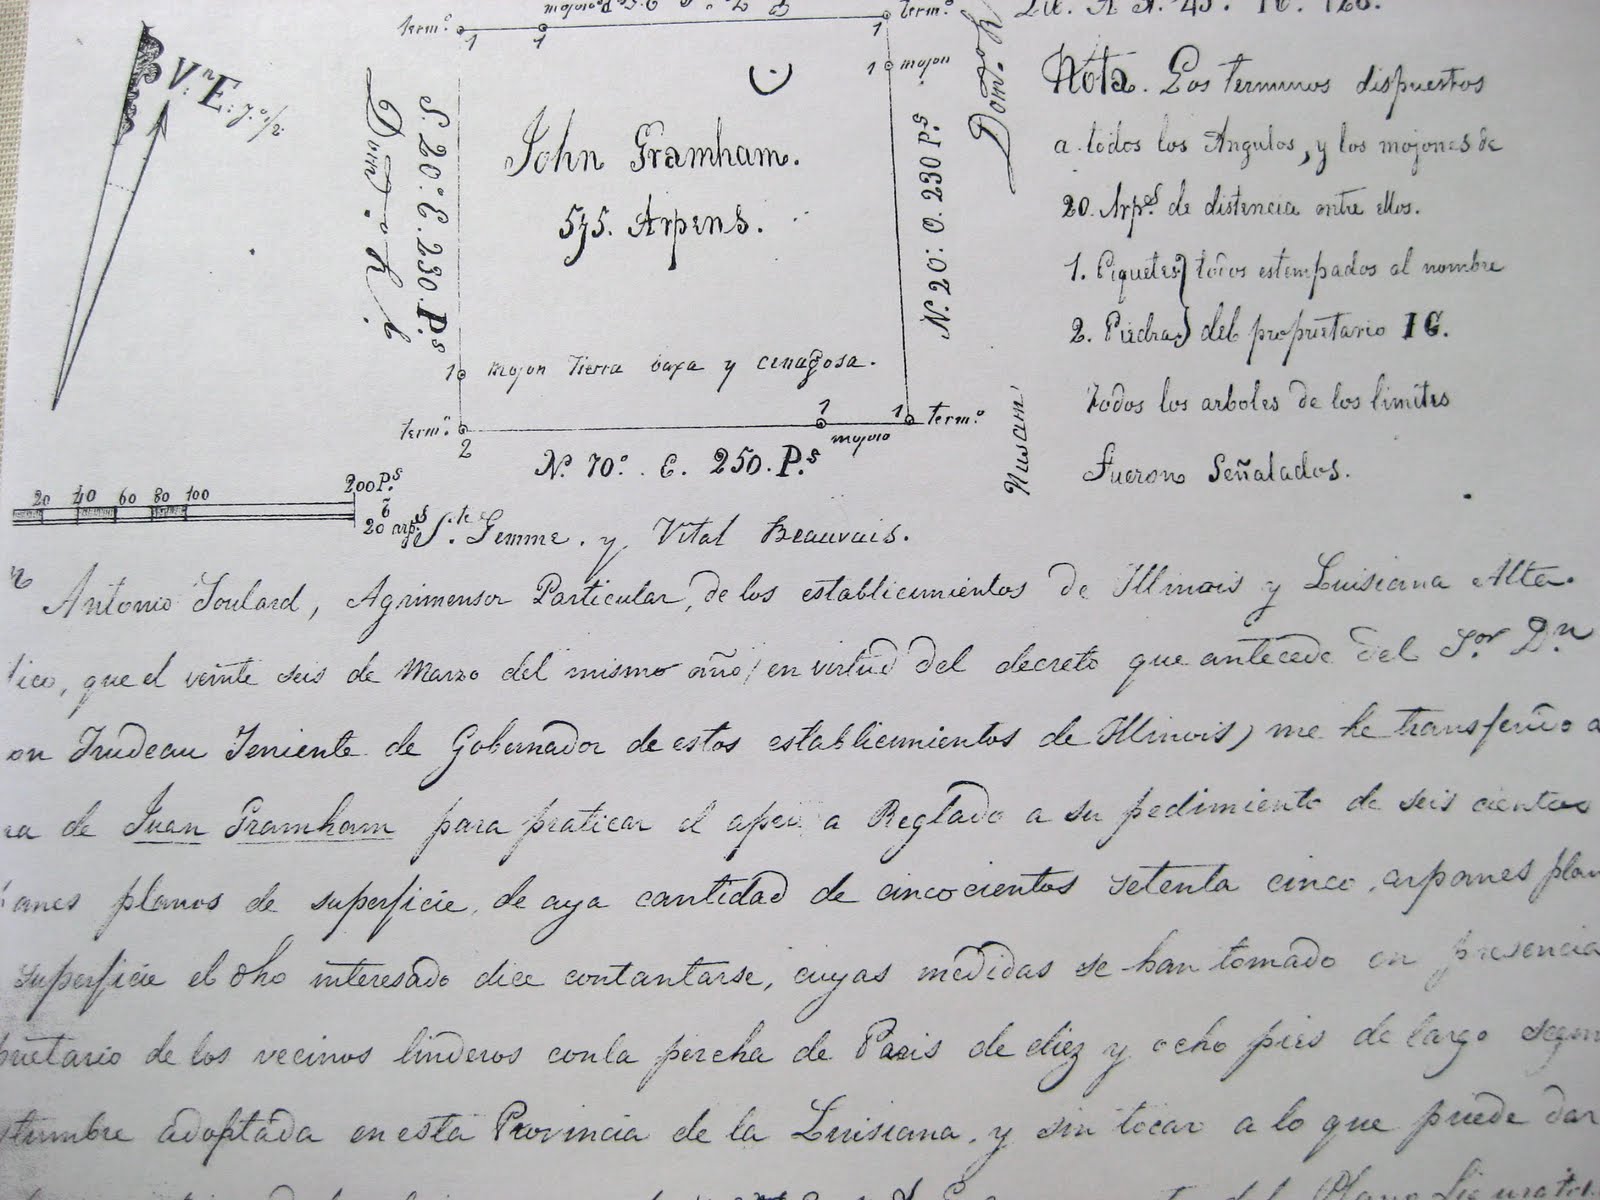 term.º
1
1
1
term.º
Lic. A Nº. 45. Fº. 128.
V.n E: 7.º 1/2.
1 mojon
Nota. Los terminos dispuestos
a todos los Angulos, y los mojones de
20. Arp.s de distencia entre ellos.
1. Piquetes } todos estempados al nombre
2. Piedras } del proprietario IG.
Todos los arboles de los limites
Fueron Señalados.
Dom.º R.l
S. 20.º E. 230 P.s
John Gramham.
575. Arpens.
N. 20.º O. 230 P.s
Dom.º R
1 mojon tierra baxa y cenagosa.
term.º
2
1
mojon
1
term.º
N. 70.º E. 250. P.s
20 40 60 80 100
200 P.s
ō
20 arp.s
S.te Gemme. y Vital Beauvais.
Antonio Soulard, Agrimensor Particular, de los establecimientos de Illinois y Luisiana Alta.
tico, que el veinte seis de Marzo del mismo año, (en virtud del decreto que antecede del S.or D.n
on Trudeau Teniente de Gobernador de estos establicimientos de Illinois) me he transferido a
ra de Juan Gramham para praticar el apeo a Reglado a su pedimiento de seis cientos
anes planos de superficie, de aya cantidad de cincocientos setenta cinco, arpanes plan
superficie el dho interesado dice contantarse, cuyas medidas se han tomado en presencia
prietario de los vecinos linderos con la percha de Paris de diez y ocho pies de largo segun
stumbre adoptada en esta Provincia de la Luisiana, y sin tocar a lo que puede dar
del Plano Figurativo